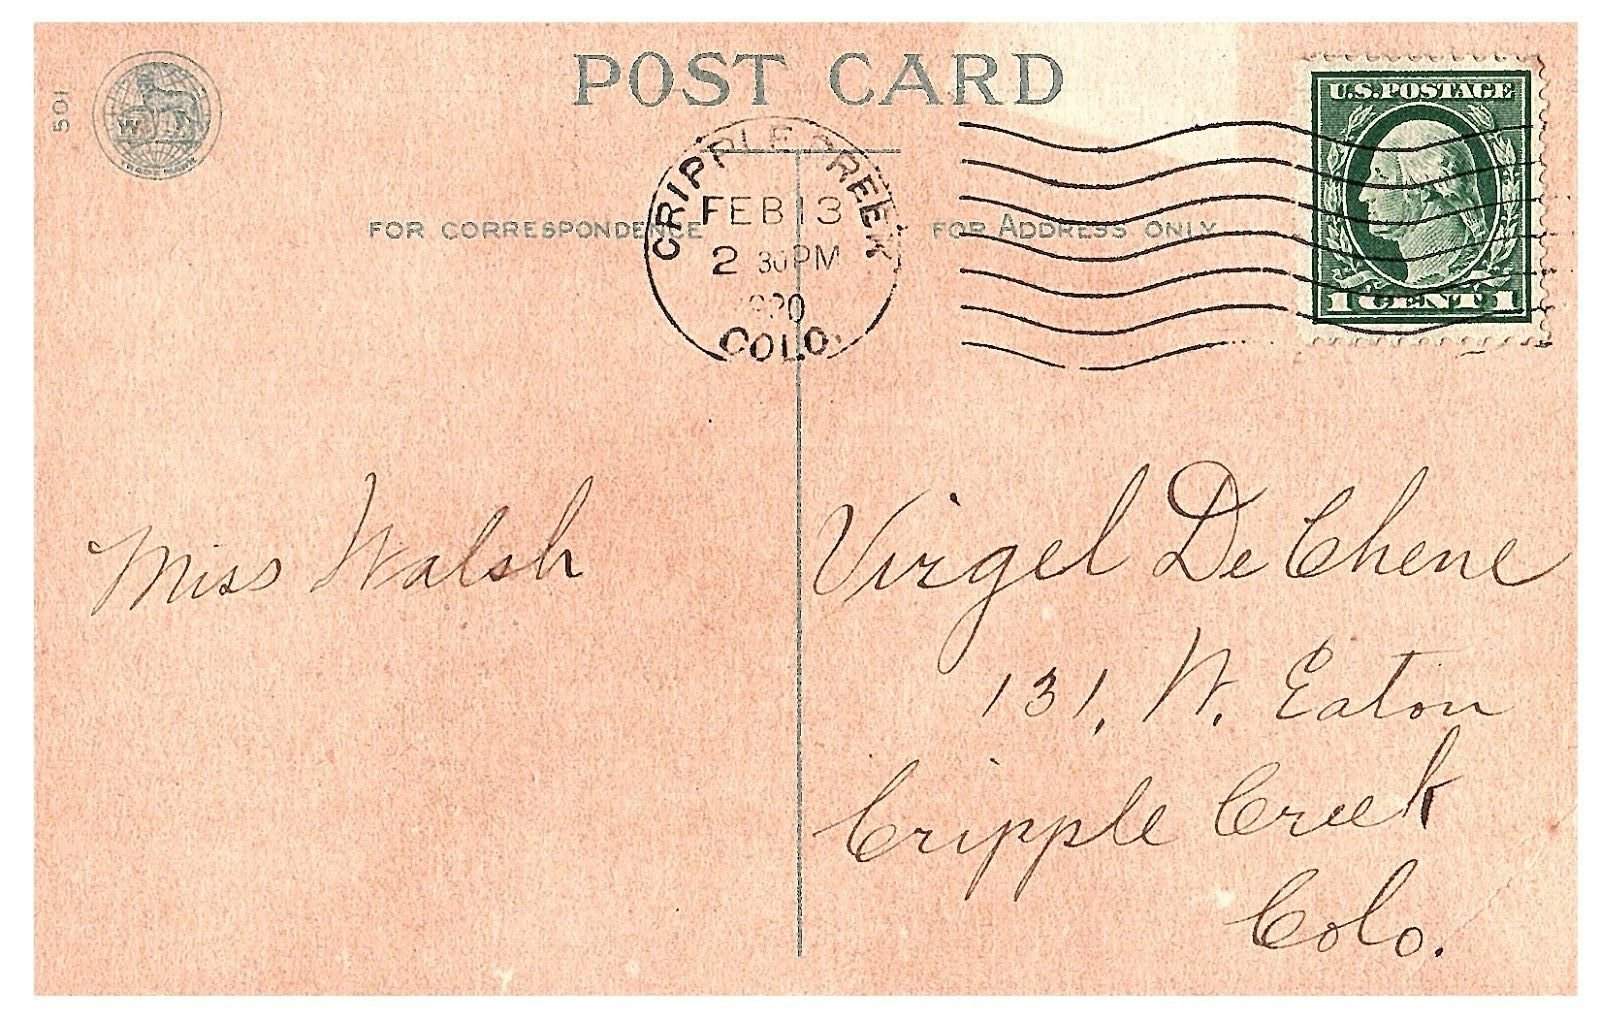 POST CARD
501
W
TRADE MARK
U.S. POSTAGE
1 CENT 1
CRIPPLE CREEK
FEB 13
2 30 PM
1920
COLO.
FOR CORRESPONDENCE
FOR ADDRESS ONLY
Miss Walsh
Virgel De Chene
131, W. Eaton
Cripple Creek
Colo.